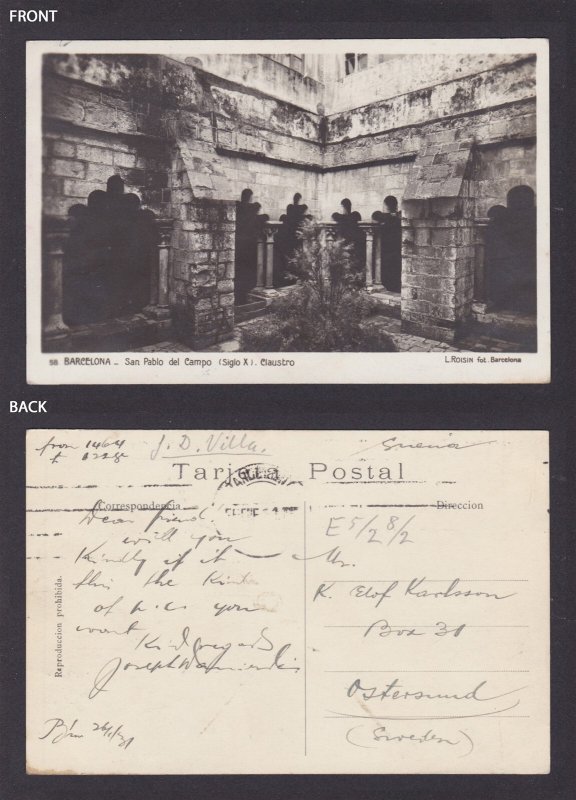 FRONT
58 BARCELONA _ San Pablo del Campo (Siglo X). Claustro
L. ROISIN fot. Barcelona
BACK
from 1464
J. D. Villa.
Suecia
Tarjeta Postal
Correspondencia
Direccion
Dear friend.
will you
Kindly if it
this the Kind
of p.cs you
want
Kind regards
Joseph
E 5/2 8/2
Mr.
K. Elof Karlsson
Box 31
Ostersund
(Sweden)
Reproduccion prohibida.